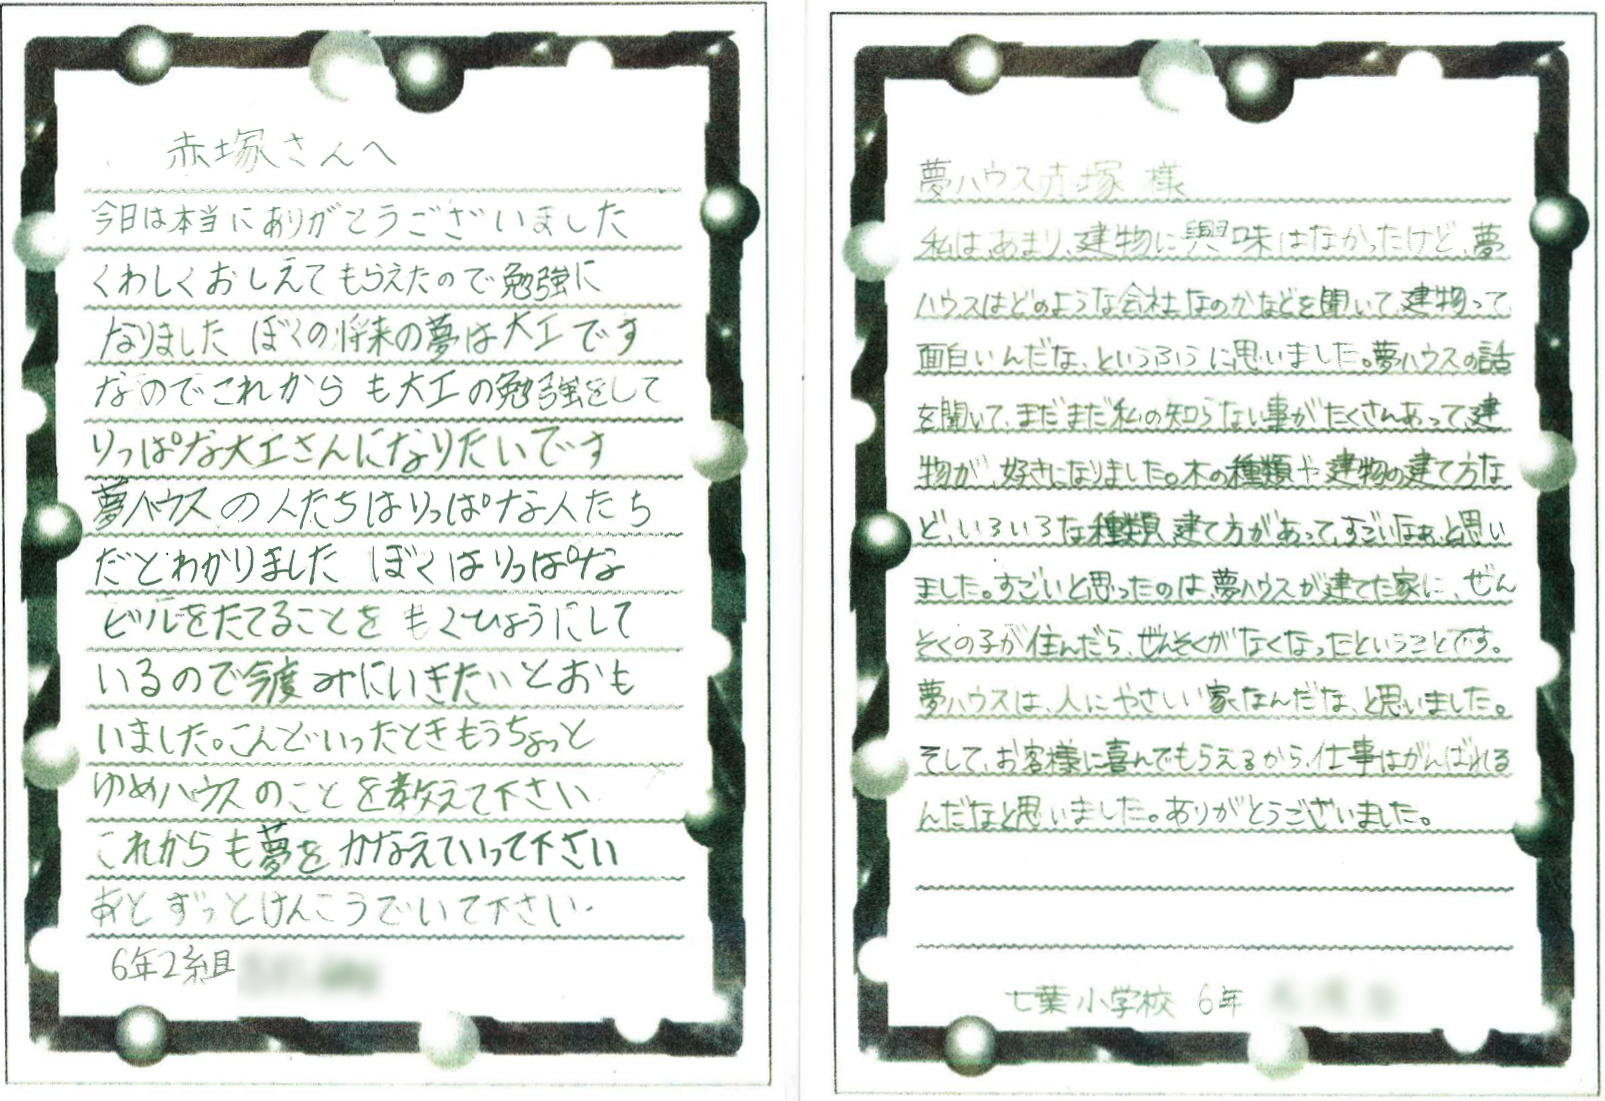 赤塚さんへ
今日は本当にありがとうございました
くわしくおしえてもらえたので勉強に
なりました ぼくの将来の夢は大工です
なのでこれからも大工の勉強をして
りっぱな大工さんになりたいです
夢ハウスの人たちはりっぱな人たち
だとわかりました ぼくはりっぱな
ビルをたてることをもくひょうにして
いるので今度みにいきたいとおも
いました。こんどいったときもうちょっと
ゆめハウスのことを教えて下さい
これからも夢をかなえていって下さい
あとずっとけんこうでいて下さい.
6年2組
夢ハウス赤塚様
私は、あまり、建物に興味はなかったけど、夢
ハウスはどのような会社なのかなどを聞いて、建物って
面白いんだな、というふうに思いました。夢ハウスの話
を聞いて、まだまだ私の知らない事がたくさんあって、建
物が、好きになりました。木の種類や建物の建て方な
ど、いろいろな種類、建て方があって、すごいなぁ、と思い
ました。すごいと思ったのは、夢ハウスが建てた家に、ぜん
そくの子が住んだら、ぜんそくがなくなったということです。
夢ハウスは、人にやさしい家なんだな、と思いました。
そして、お客様に喜んでもらえるから、仕事はがんばれる
んだなと思いました。ありがとうございました。
七葉小学校 6年